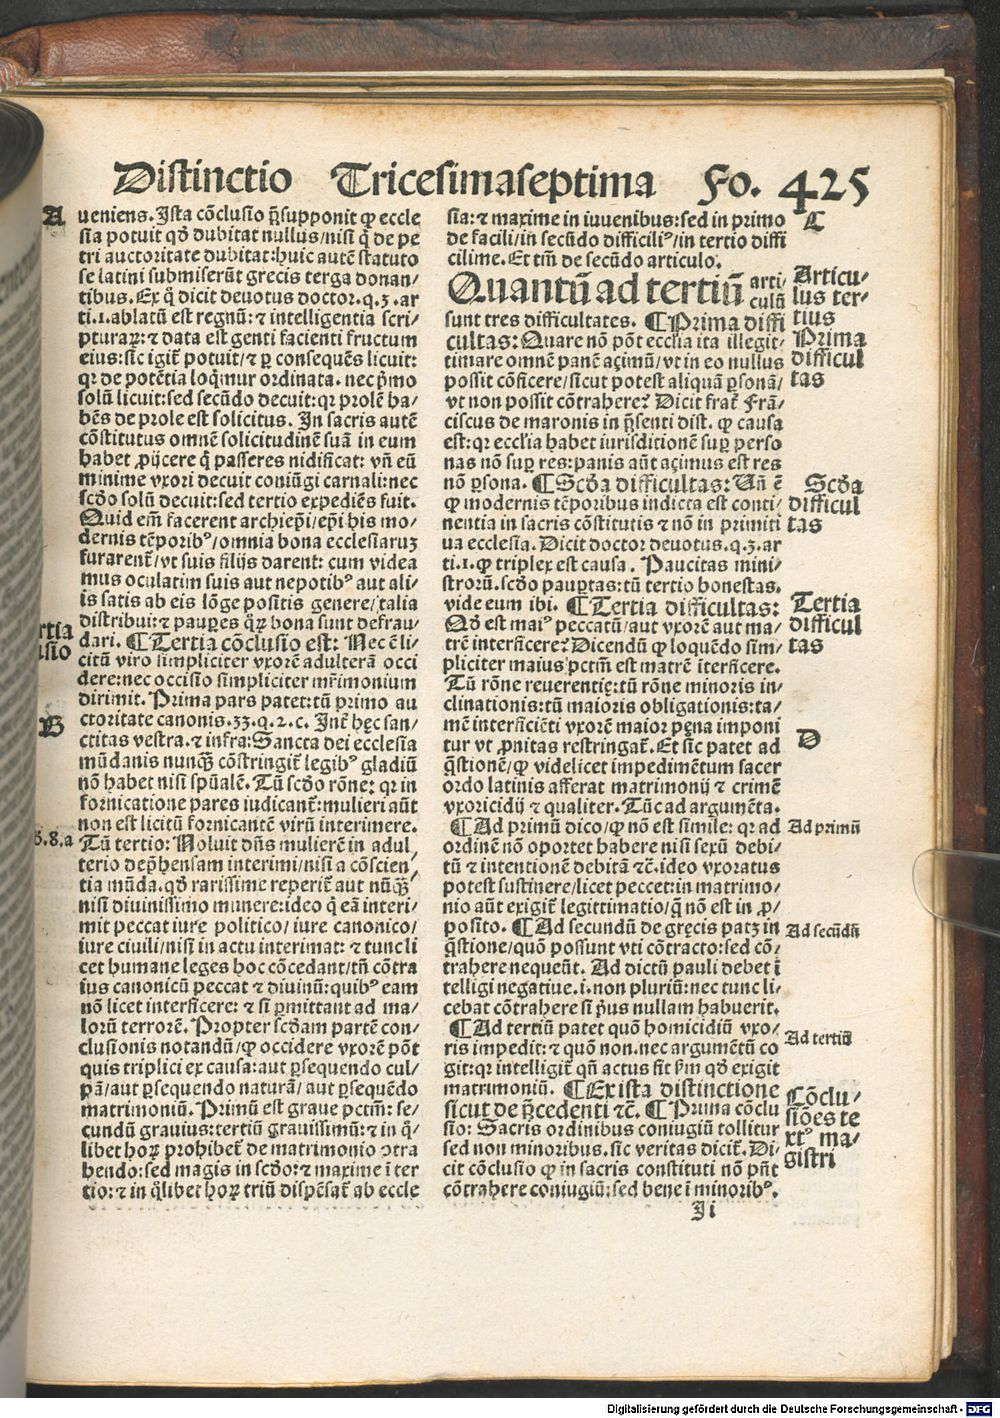 Distinctio Tricesimaseptima Fo. 425
A
ueniens. Ista cõclusio p̃supponit ꝙ eccle
sia potuit qđ dubitat nullus/nisi q̃ de pe
tri auctoritate dubitat: huic autẽ statuto
se latini submiserũt grecis terga donan/
tibus. Ex q̃ dicit deuotus doctor. q. 3. ar
ti. 1. ablatũ est regnũ: ⁊ intelligentia scri/
pturaꝝ: ⁊ data est genti facienti fructum
eius: sic igit̃ potuit/⁊ ꝑ consequẽs licuit:
qꝛ de potẽtia loq̃mur ordinata. nec p̃mo
solũ licuit: sed secũdo decuit: qꝛ prolẽ ha/
bẽs de prole est solicitus. In sacris autẽ
cõstitutus omnẽ solicitudinẽ suã in eum
habet ꝓijcere q̃ passeres nidificat: vñ eũ
minime vxori decuit coniũgi carnali: nec
scđo solũ decuit: sed tertio expediẽs fuit.
Quid em̃ facerent archiep̃i/ep̃i his mo/
dernis tẽporibꝰ/omnia bona ecclesiaruꝫ
furarent̃/vt suis filijs darent: cum videa
mus oculatim suis aut nepotibꝰ aut ali/
is satis ab eis lõge positis genere/talia
distribui: ⁊ pauꝑes q̃ꝝ bona sunt defrau/
dari. ¶Tertia cõclusio est: Nec ẽ li/
citũ viro simpliciter vxorẽ adulterã occi
dere: nec occisio simpliciter mr̃imonium
dirimit. Prima pars patet: tũ primo au
ctoritate canonis. 33. q. 2. c. Inẽ hęc san/
ctitas vestra. ⁊ infra: Sancta dei ecclesia
mũdanis nunq̃ꝫ cõstringit̃ legibꝰ gladiũ
nõ habet nisi spũalẽ. Tũ scđo rõne: qꝛ in
fornicatione pares iudicant̃: mulieri aũt
non est licitũ fornicantẽ virũ interimere.
Tũ tertio: Noluit dñs mulierẽ in adul/
terio dep̃hensam interimi/nisi a cõscien/
tia mũda. qđ rarissime reperit̃ aut nũq̃ꝫ/
nisi diuinissimo munere: ideo q̃ eã interi/
mit peccat iure politico/ iure canonico/
iure ciuili/nisi in actu interimat: ⁊ tunc li
cet humane leges hoc cõcedant/tñ cõtra
ius canonicũ peccat ⁊ diuinũ: quibꝰ eam
nõ licet interficere: ⁊ si ꝑmittant ad ma/
lorũ terrorẽ. Propter scđam partẽ con/
clusionis notandũ/ꝙ occidere vxorẽ põt
quis triplici ex causa: aut ꝑsequendo cul/
pã/aut ꝑsequendo naturã/ aut ꝑsequẽdo
matrimoniũ. Primũ est graue pctm̃: se/
cundũ grauius: tertiũ grauissimũ: ⁊ in q̃/
libet hoꝝ prohibet̃ de matrimonio ↄtra
hendo: sed magis in scđo: ⁊ maxime ĩ ter
tio: ⁊ in q̃libet hoꝝ triũ dispẽsat̃ ab eccle
rtia
usio
B
8. 8. a
sia: ⁊ maxime in iuuenibus: sed in primo
de facili/in secũdo difficiliꝰ/in tertio diffi
cilime. Et tm̃ de secũdo articulo.
Quantũ ad tertiũ arti/
culũ
sunt tres difficultates. ¶Prima diffi
cultas: Quare nõ põt ecclia ita illegit/
timare omnẽ panẽ açimũ/vt in eo nullus
possit cõficere/sicut potest aliquã ꝑsonã/
vt non possit cõtrahere? Dicit frat̃ Frã/
ciscus de maronis in p̃senti dist. ꝙ causa
est: qꝛ ecclia habet iurisditionẽ suꝑ perso
nas nõ suꝑ res: panis aũt açimus est res
nõ ꝑsona. ¶Scđa difficultas: Vñ ẽ
ꝙ modernis tẽporibus indicta est conti/
nentia in sacris cõstitutis ⁊ nõ in primiti
ua ecclesia. Dicit doctor deuotus. q. 3. ar
ti. 1. ꝙ triplex est causa. Paucitas mini/
strorũ. scđo pauꝑtas: tũ tertio honestas.
vide eum ibi. ¶Tertia difficultas:
Qđ est maiꝰ peccatũ/aut vxorẽ aut ma/
trẽ interficere? Dicendũ ꝙ loquẽdo sim/
pliciter maius pctm̃ est matrẽ ĩterficere.
Tũ rõne reuerentię: tũ rõne minoris in/
clinationis: tũ maioris obligationis: ta/
mẽ interficiẽti vxorẽ maior pęna imponi
tur vt ꝓnitas restringat̃. Et sic patet ad
q̃stionẽ/ꝙ videlicet impedimẽtum sacer
ordo latinis afferat matrimonij ⁊ crimẽ
vxoricidij ⁊ qualiter. Tũc ad argumẽta.
¶Ad primũ dico/ꝙ nõ est simile: qꝛ ad
ordinẽ nõ oportet habere nisi sexũ debi/
tũ ⁊ intentionẽ debitã ⁊c̃. ideo vxoratus
potest sustinere/licet peccet: in matrimo/
nio aũt exigit̃ legittimatio/q̃ nõ est in ꝓ/
posito. ¶Ad secundũ de gręcis patꝫ in
q̃stione/quõ possunt vti cõtracto: sed cõ/
trahere nequeũt. Ad dictũ pauli debet ĩ
telligi negatiue. i. non pluriũ: nec tunc li/
cebat cõtrahere si p̃us nullam habuerit.
¶Ad tertiũ patet quõ homicidiũ vxo/
ris impedit: ⁊ quõ non. nec argumẽtũ co
git: qꝛ intelligit̃ qñ actus fit ꝓm̃ qđ exigit
matrimoniũ. ¶Ex ista distinctione
sicut de p̃cedenti ⁊c̃. ¶Prima cõclu
sio: Sacris ordinibus coniugiũ tollitur
sed non minoribus. sic veritas dicit̃. Di/
cit cõclusio ꝙ in sacris constituti nõ pñt
cõtrahere coniugiũ: sed bene ĩ minoribꝰ.
C
Articu/
lus ter/
tius
Prima
difficul
tas
Scđa
difficul
tas
Tertia
difficul
tas
D
Ad primũ
Ad secũdũ
Ad tertiũ
Cõclu/
siões te
xtꝰ ma/
gistri
Ii
Digitalisierung gefördert durch die Deutsche Forschungsgemeinschaft - DFG